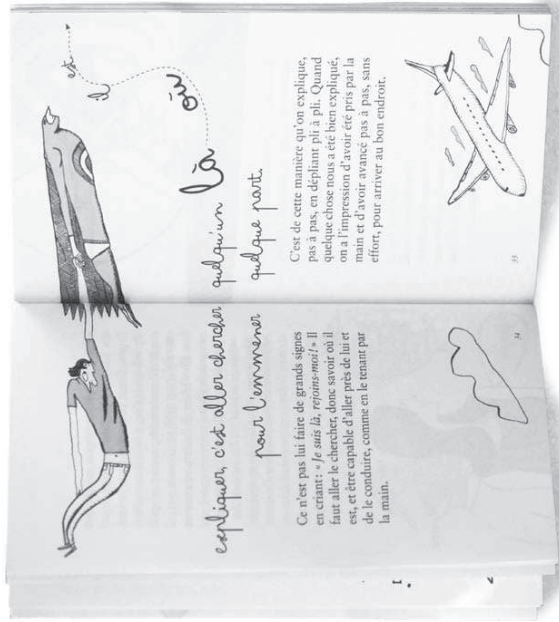 expliquer, c'est aller chercher quelqu'un là où il est
pour l'emmener quelque part.
Ce n'est pas lui faire de grands signes
en criant : « Je suis là, rejoins-moi ! » Il
faut aller le chercher, donc savoir où il
est, et être capable d'aller près de lui et
de le conduire, comme en le tenant par
la main.
34
C'est de cette manière qu'on explique,
pas à pas, en dépliant pli à pli. Quand
quelque chose nous a été bien expliqué,
on a l'impression d'avoir été pris par la
main et d'avoir avancé pas à pas, sans
effort, pour arriver au bon endroit.